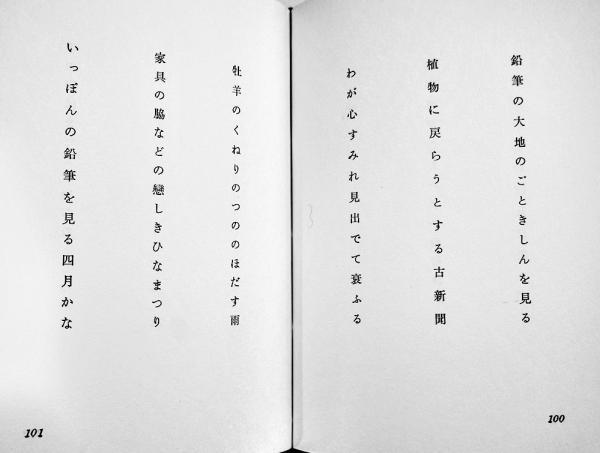 鉛筆の大地のごときしんを見る
植物に戻らうとする古新聞
わが心すみれ見出でて衰ふる
100
牡羊のくねりのつののほだす雨
家具の脇などの戀しきひなまつり
いっぽんの鉛筆を見る四月かな
101